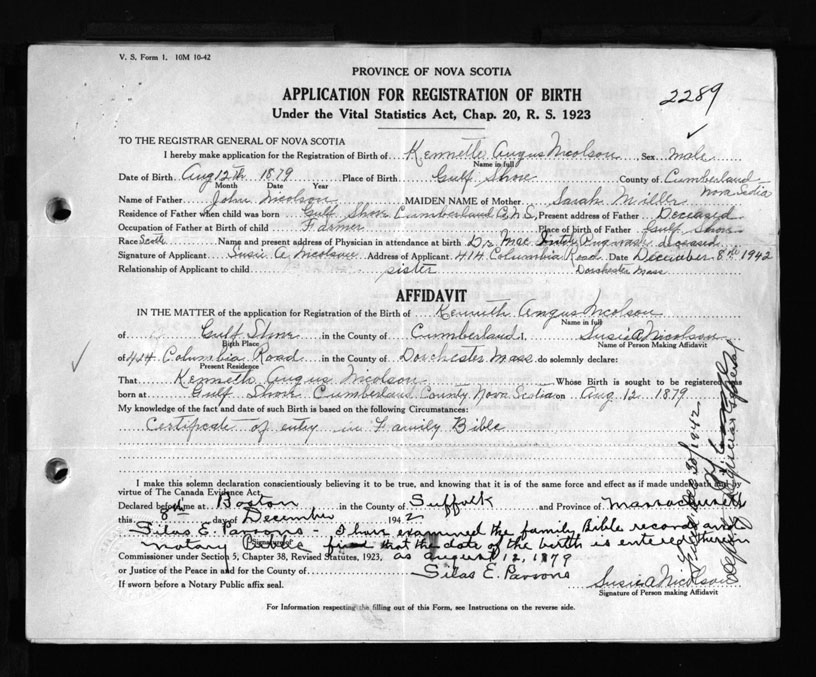 V. S. Form 1. 10M 10-42
PROVINCE OF NOVA SCOTIA
APPLICATION FOR REGISTRATION OF BIRTH
2289
Under the Vital Statistics Act, Chap. 20, R. S. 1923
TO THE REGISTRAR GENERAL OF NOVA SCOTIA
I hereby make application for the Registration of Birth of Kenneth Angus Nicolson Sex male
Name in full
Date of Birth Aug 12th 1879 Place of Birth Gulf Shore County of Cumberland
Month Date Year Nova Scotia
Name of Father John Nicolson MAIDEN NAME of Mother Sarah Miller
Residence of Father when child was born Gulf Shore Cumberland Co N.S. Present address of Father Deceased
Occupation of Father at Birth of child Farmer Place of birth of Father Gulf Shore
Race Scotch Name and present address of Physician in attendance at birth Dr. Mac Pugwash deceased
Signature of Applicant Susie A Nicolson Address of Applicant 414 Columbia Road Date December 8th 1942
Relationship of Applicant to child sister Dorchester Mass
AFFIDAVIT
IN THE MATTER of the application for Registration of the Birth of Kenneth Angus Nicolson
Name in full
of Gulf Shore in the County of Cumberland I, Susie A Nicolson
Birth Place Name of Person Making Affidavit
of 414 Columbia Road in the County of Dorchester Mass. do solemnly declare:
Present Residence
That Kenneth Angus Nicolson Whose Birth is sought to be registered was
born at Gulf Shore Cumberland County Nova Scotia on Aug 12 1879
My knowledge of the fact and date of such Birth is based on the following Circumstances:
Certificate of entry in Family Bible
I make this solemn declaration believing it to be true, and knowing that it is of the same force and effect as if made under oath and by
virtue of The Canada Evidence Act.
Declared before me at Boston in the County of Suffolk and Province of Massachusetts
this 8th day of December 1942
Silas E. Parsons - I have examined the family Bible record and
notary Public find that the date of the birth is entered therein
Commissioner under Section 5, Chapter 38, Revised Statutes, 1923, as August 12, 1879
or Justice of the Peace in and for the County of Silas E. Parsons
Susie A Nicolson
If sworn before a Notary Public affix seal. Signature of Person making Affidavit
For Information respecting the filling out of this Form, see Instructions on the reverse side.
Filed Dec 30/1942
Deputy Registrar General